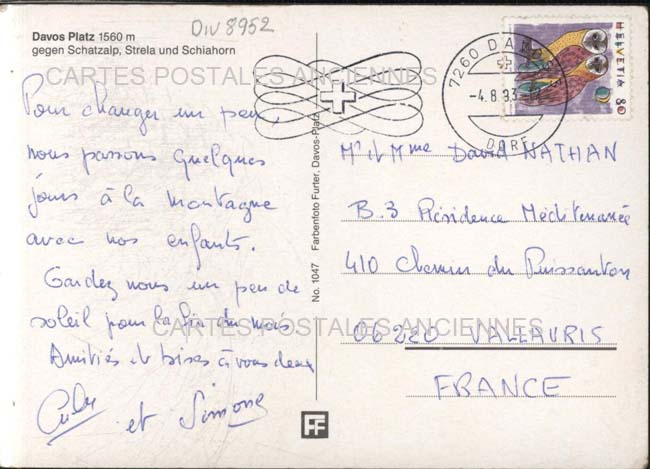 DIV 8952
Davos Platz 1560 m
gegen Schatzalp, Strela und Schiahorn
CARTES POSTALES ANCIENNES
Pour changer un peu,
nous passons quelques
jours à la montagne
avec nos enfants.
Gardez nous un peu de
soleil pour la fin du mois
Amitiés et bises à vous deux
et Simone
No. 1047 Farbenfoto Furter, Davos-Platz
7260 DAVOS
-4.8.93
DORF
HELVETIA 80
Mr et Mme David NATHAN
B.3 Résidence Méditerranée
410 Chemin du Puissanton
06220 VALLAURIS
FRANCE
CARTES POSTALES ANCIENNES
FF